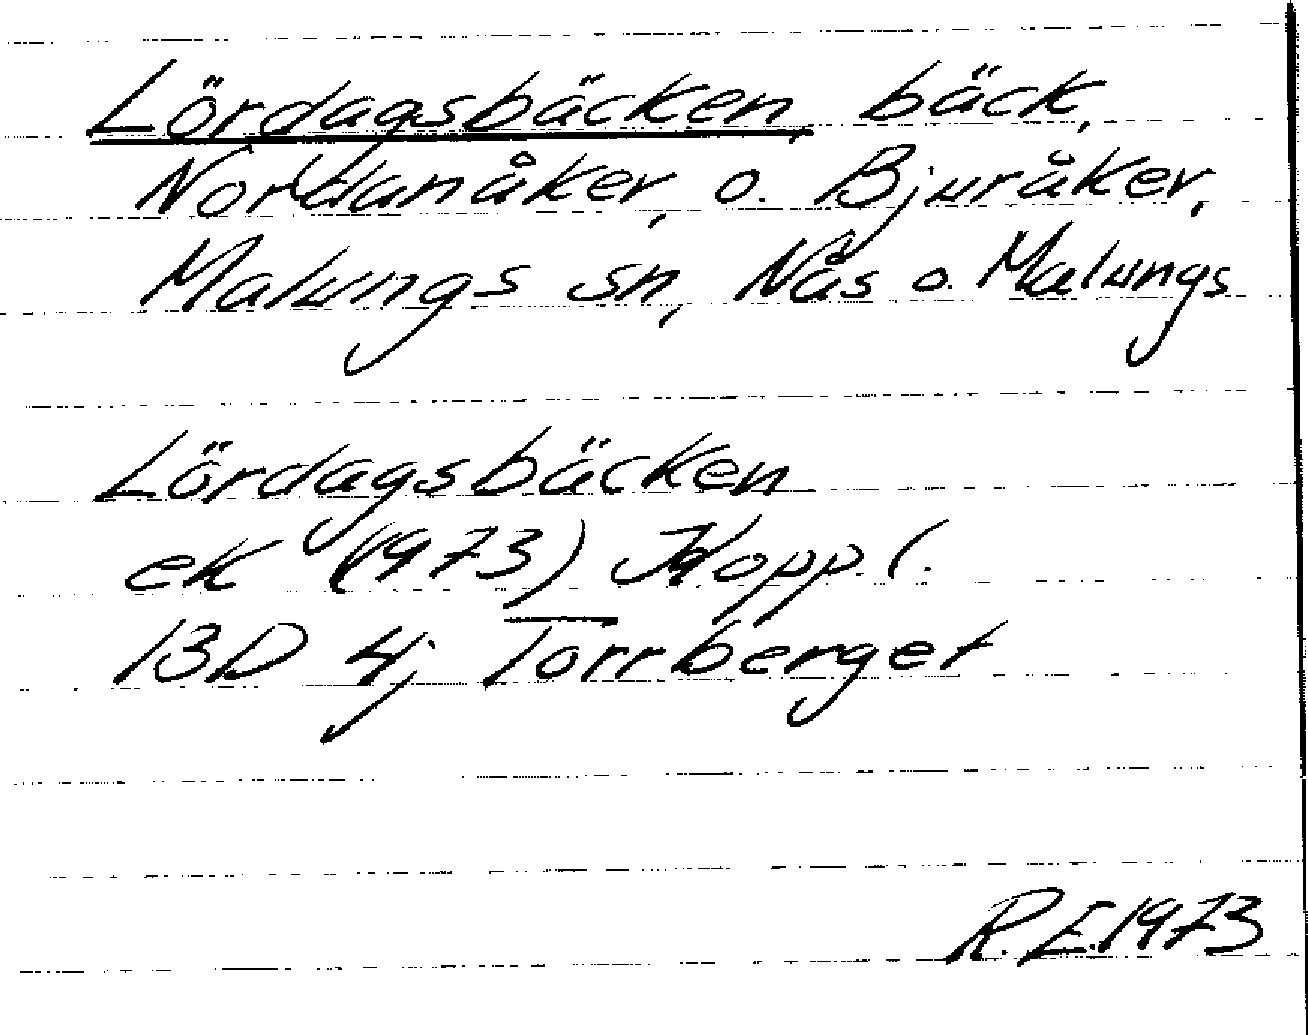 Lördagsbäcken, bäck,
Nordanåker, o. Bjuråker,
Malungs sn, Nås o. Malungs
Lördagsbäcken
ek (1973) Kopp.l.
13D 4j Torrberget
R.E.1973